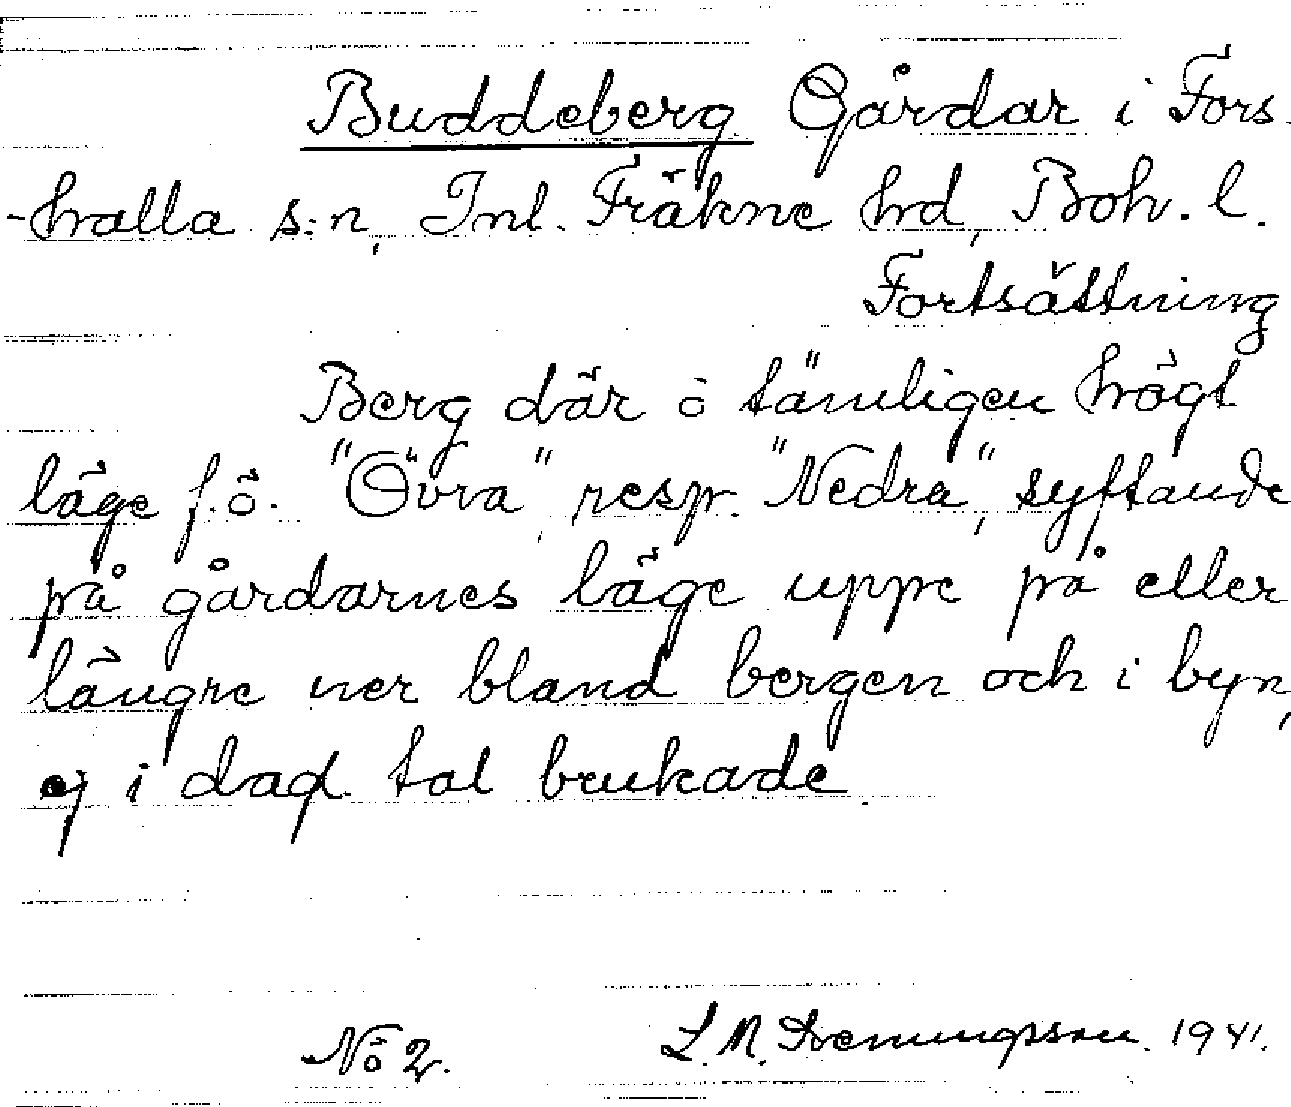 Buddeberg Gårdar i Fors
-hälla s:n, Inl. Fräkne hrd, Boh. l.
Fortsättning
Berg där ö tämligen högt
läge f.ö. "Övra", resp. "Nedra", syftande
på gårdarnes läge uppe på eller
längre ner bland bergen och i byn,
ej i dagl. tal brukade
No 2. L. M. 1941.